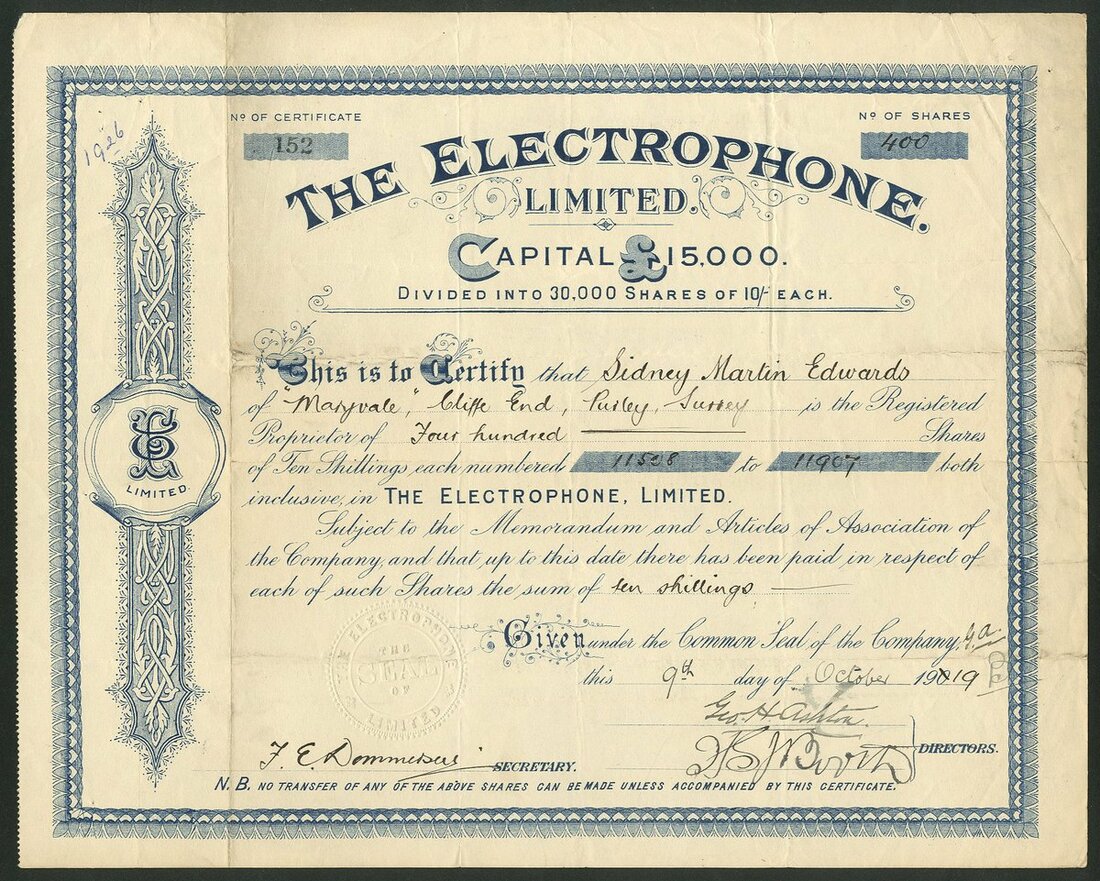 1926
Nº OF CERTIFICATE
152
Nº OF SHARES
400
THE ELECTROPHONE.
LIMITED.
CAPITAL £15,000.
DIVIDED INTO 30,000 SHARES OF 10/- EACH.
This is to Certify that Sidney Martin Edwards
of "Maryvale," Cliffe End, Purley, Surrey is the Registered
Proprietor of Four hundred Shares
of Ten Shillings each numbered 11528 to 11907 both
inclusive, in THE ELECTROPHONE, LIMITED.
Subject to the Memorandum and Articles of Association of
the Company, and that up to this date there has been paid in respect of
each of such Shares the sum of ten shillings
Given under the Common Seal of the Company,
this 9th day of October 19019
Geo. H. Ashton.
Booth
DIRECTORS.
F. E. SECRETARY.
N.B. NO TRANSFER OF ANY OF THE ABOVE SHARES CAN BE MADE UNLESS ACCOMPANIED BY THIS CERTIFICATE.
E
LIMITED.
THE ELECTROPHONE LIMITED
THE
SEAL
OF